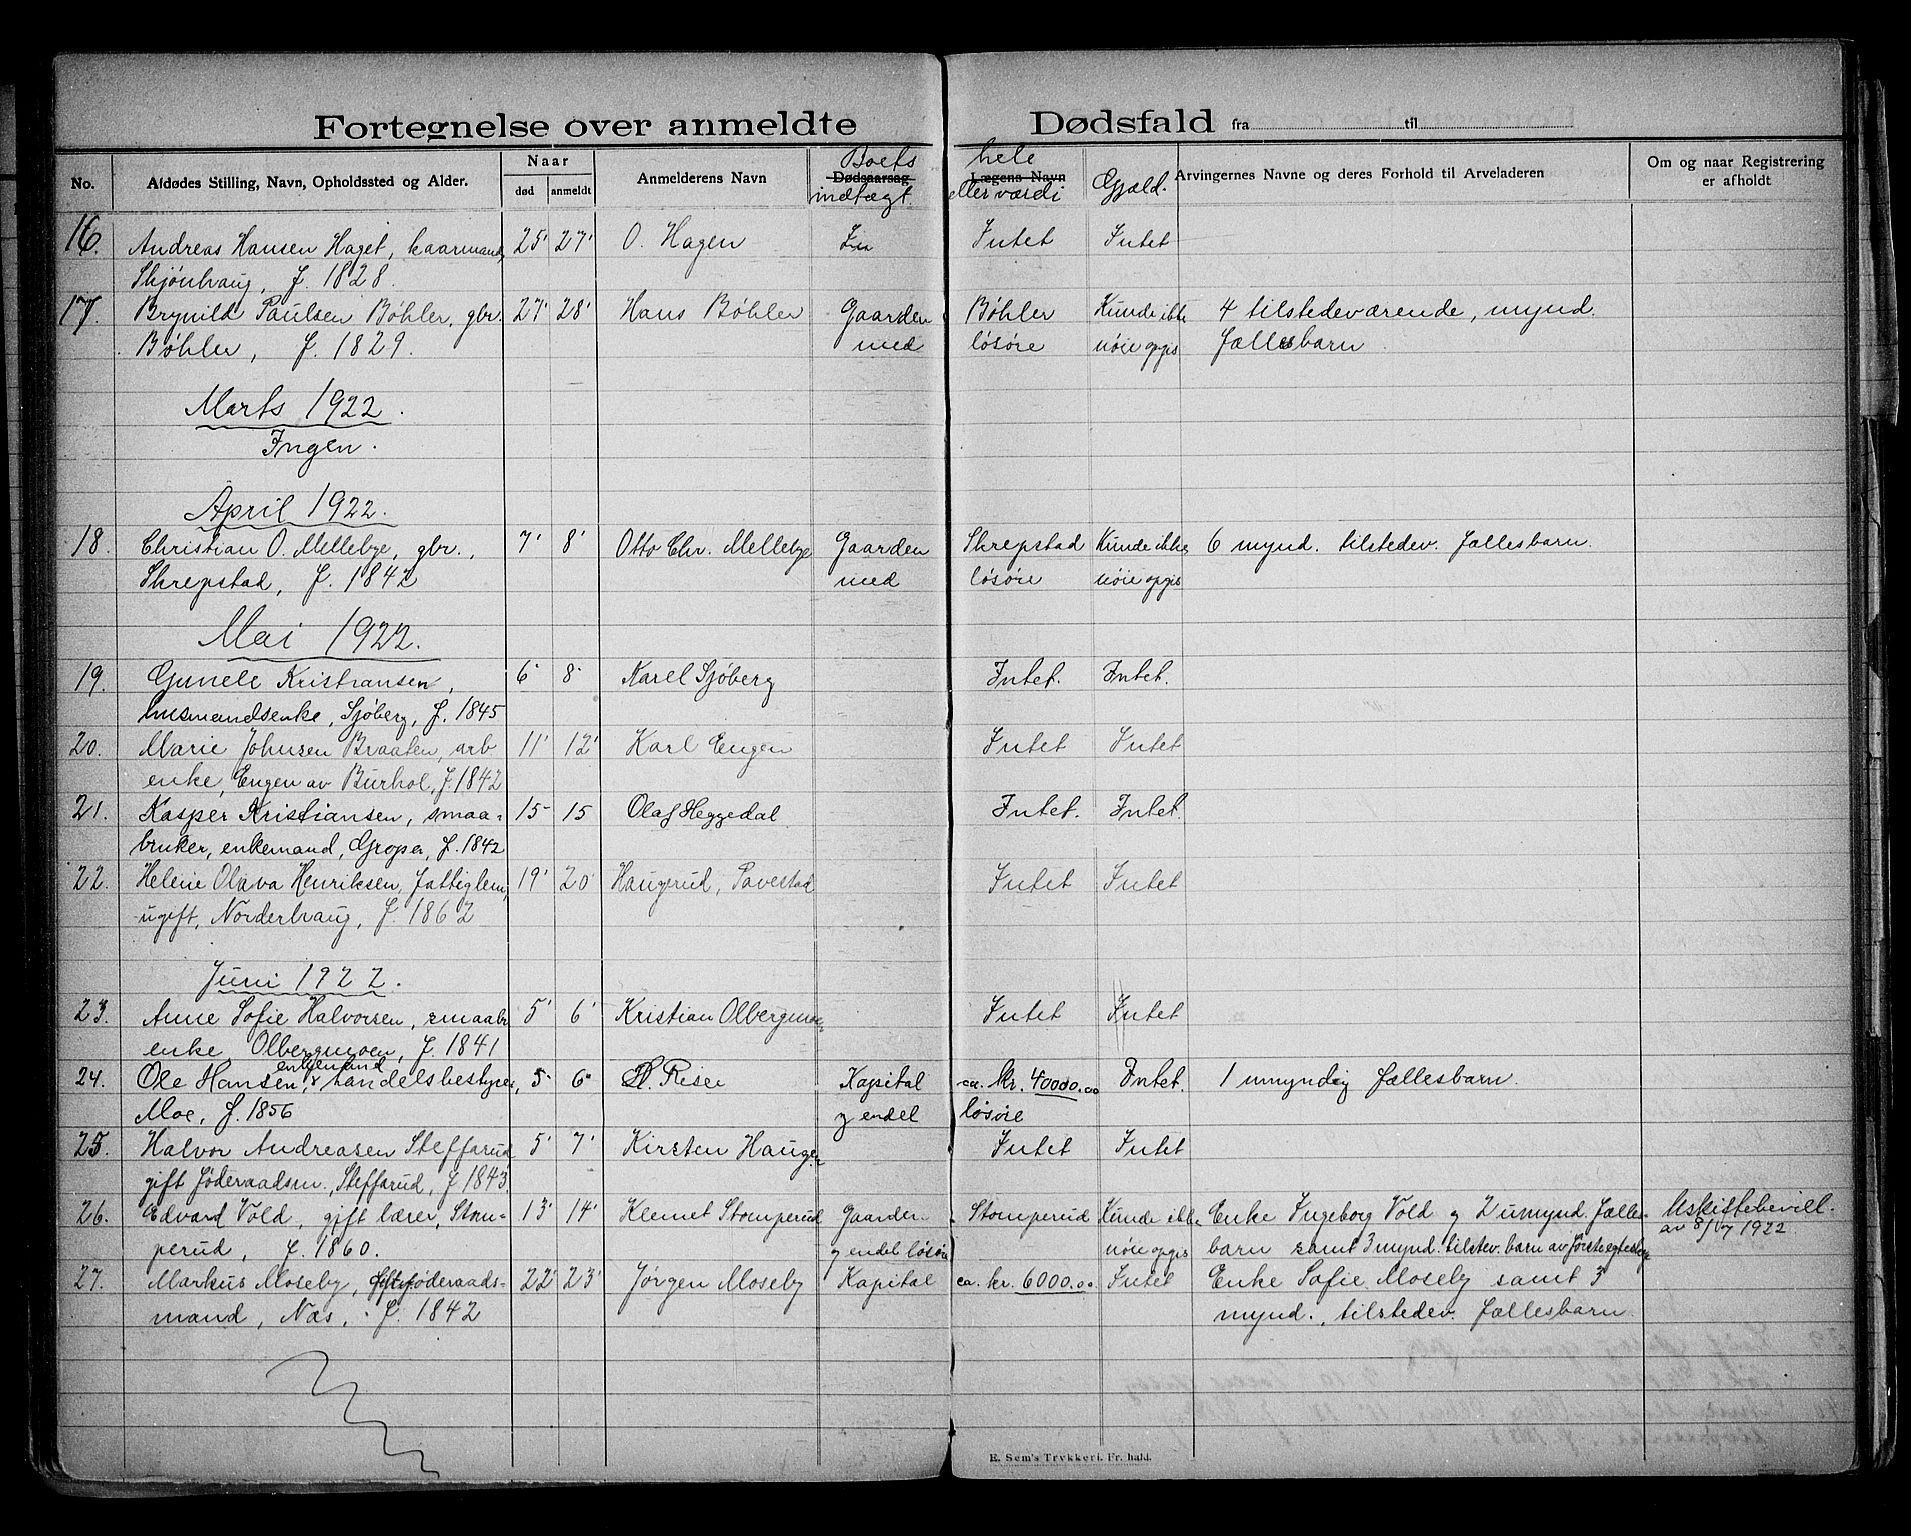 Fortegnelse over anmeldte Dødsfald fra til
No. Afdødes Stilling, Navn, Opholdssted og Alder. Naar død anmeldt Anmelderens Navn Dødsaarsag Lægens Navn Arvingernes Navne og deres Forhold til Arveladeren Om og naar Registrering er afholdt
Boets hele
indtægt eller værdi Gjæld.
16. Andreas Hansen Haget, kaarmand, 25' 27' O. Hagen In Intet Intet
Skjønhaug, f. 1828.
17. Brynild Paulsen Bøhler, gbr. 27' 28' Hans Bøhler Gaarden Bøhler Kunde ikke 4 tilstedeværende, mynd.
Bøhler, f. 1829. med løsøre nøie opgis fællesbarn
Marts 1922.
Ingen.
April 1922.
18. Christian O. Mellebye, gbr., 7' 8' Otto Chr. Mellebye Gaarden Skrepstad Kunde ikke 6 mynd. tilstedev. fællesbarn.
Skrepstad, f. 1842 med løsøre nøie opgis
Mai 1922.
19. Gunele Kristiansen, 6' 8' Karel Sjøberg Intet. Intet.
husmandsenke, Sjøberg, f. 1845
20. Marie Johnsen Braaten, arb. 11' 12' Karl Engen Intet Intet
enke, Engen av Burhol, f. 1842
21. Kasper Kristiansen, smaa- 15- 15 Olaf Heggedal Intet. Intet.
bruker, enkemand, Gropa, f. 1842
22. Helene Olava Henriksen, fattiglem, 19' 20' Haugerud, Tavestad Intet Intet
ugift, Norderhaug, f. 1862
Juni 1922.
23. Anne Sofie Halvorsen, smaabr. 5' 6' Kristian Olbergmoen Intet Intet
enke, Olbergmoen, f. 1841
enkemand
24. Ole Hansen, handelsbestyrer, 5- 6' H. Riser Kapital ca. kr. 40000.00 Intet. 1 umyndig fællesbarn.
Moe, f. 1856 og endel løsøre
25. Halvor Andreasen Steffarud 5' 7' Kirsten Haugen Intet Intet
gift føderaadsm., Steffarud, f. 1843.
26. Edvard Vold, gift lærer, Stom- 13' 14' Klemet Stomperud Gaarden Stomperud Kunde ikke Enke Ingeborg Vold og 2 umynd. fælles- Uskiftebevill.
perud, f. 1860. og endel løsøre nøie opgis barn samt 3 mynd. tilstev. barn av første egteskap av 8/7 1922
27. Markus Moseby, føderaads- 22' 23' Jørgen Moseby Kapital ca. kr. 6000.00 Intet Enke Sofie Moseby samt 3
mand, Næs, f. 1842 mynd., tilstedev. fællesbarn.
E. Sem's Trykkeri. Fr. hald.